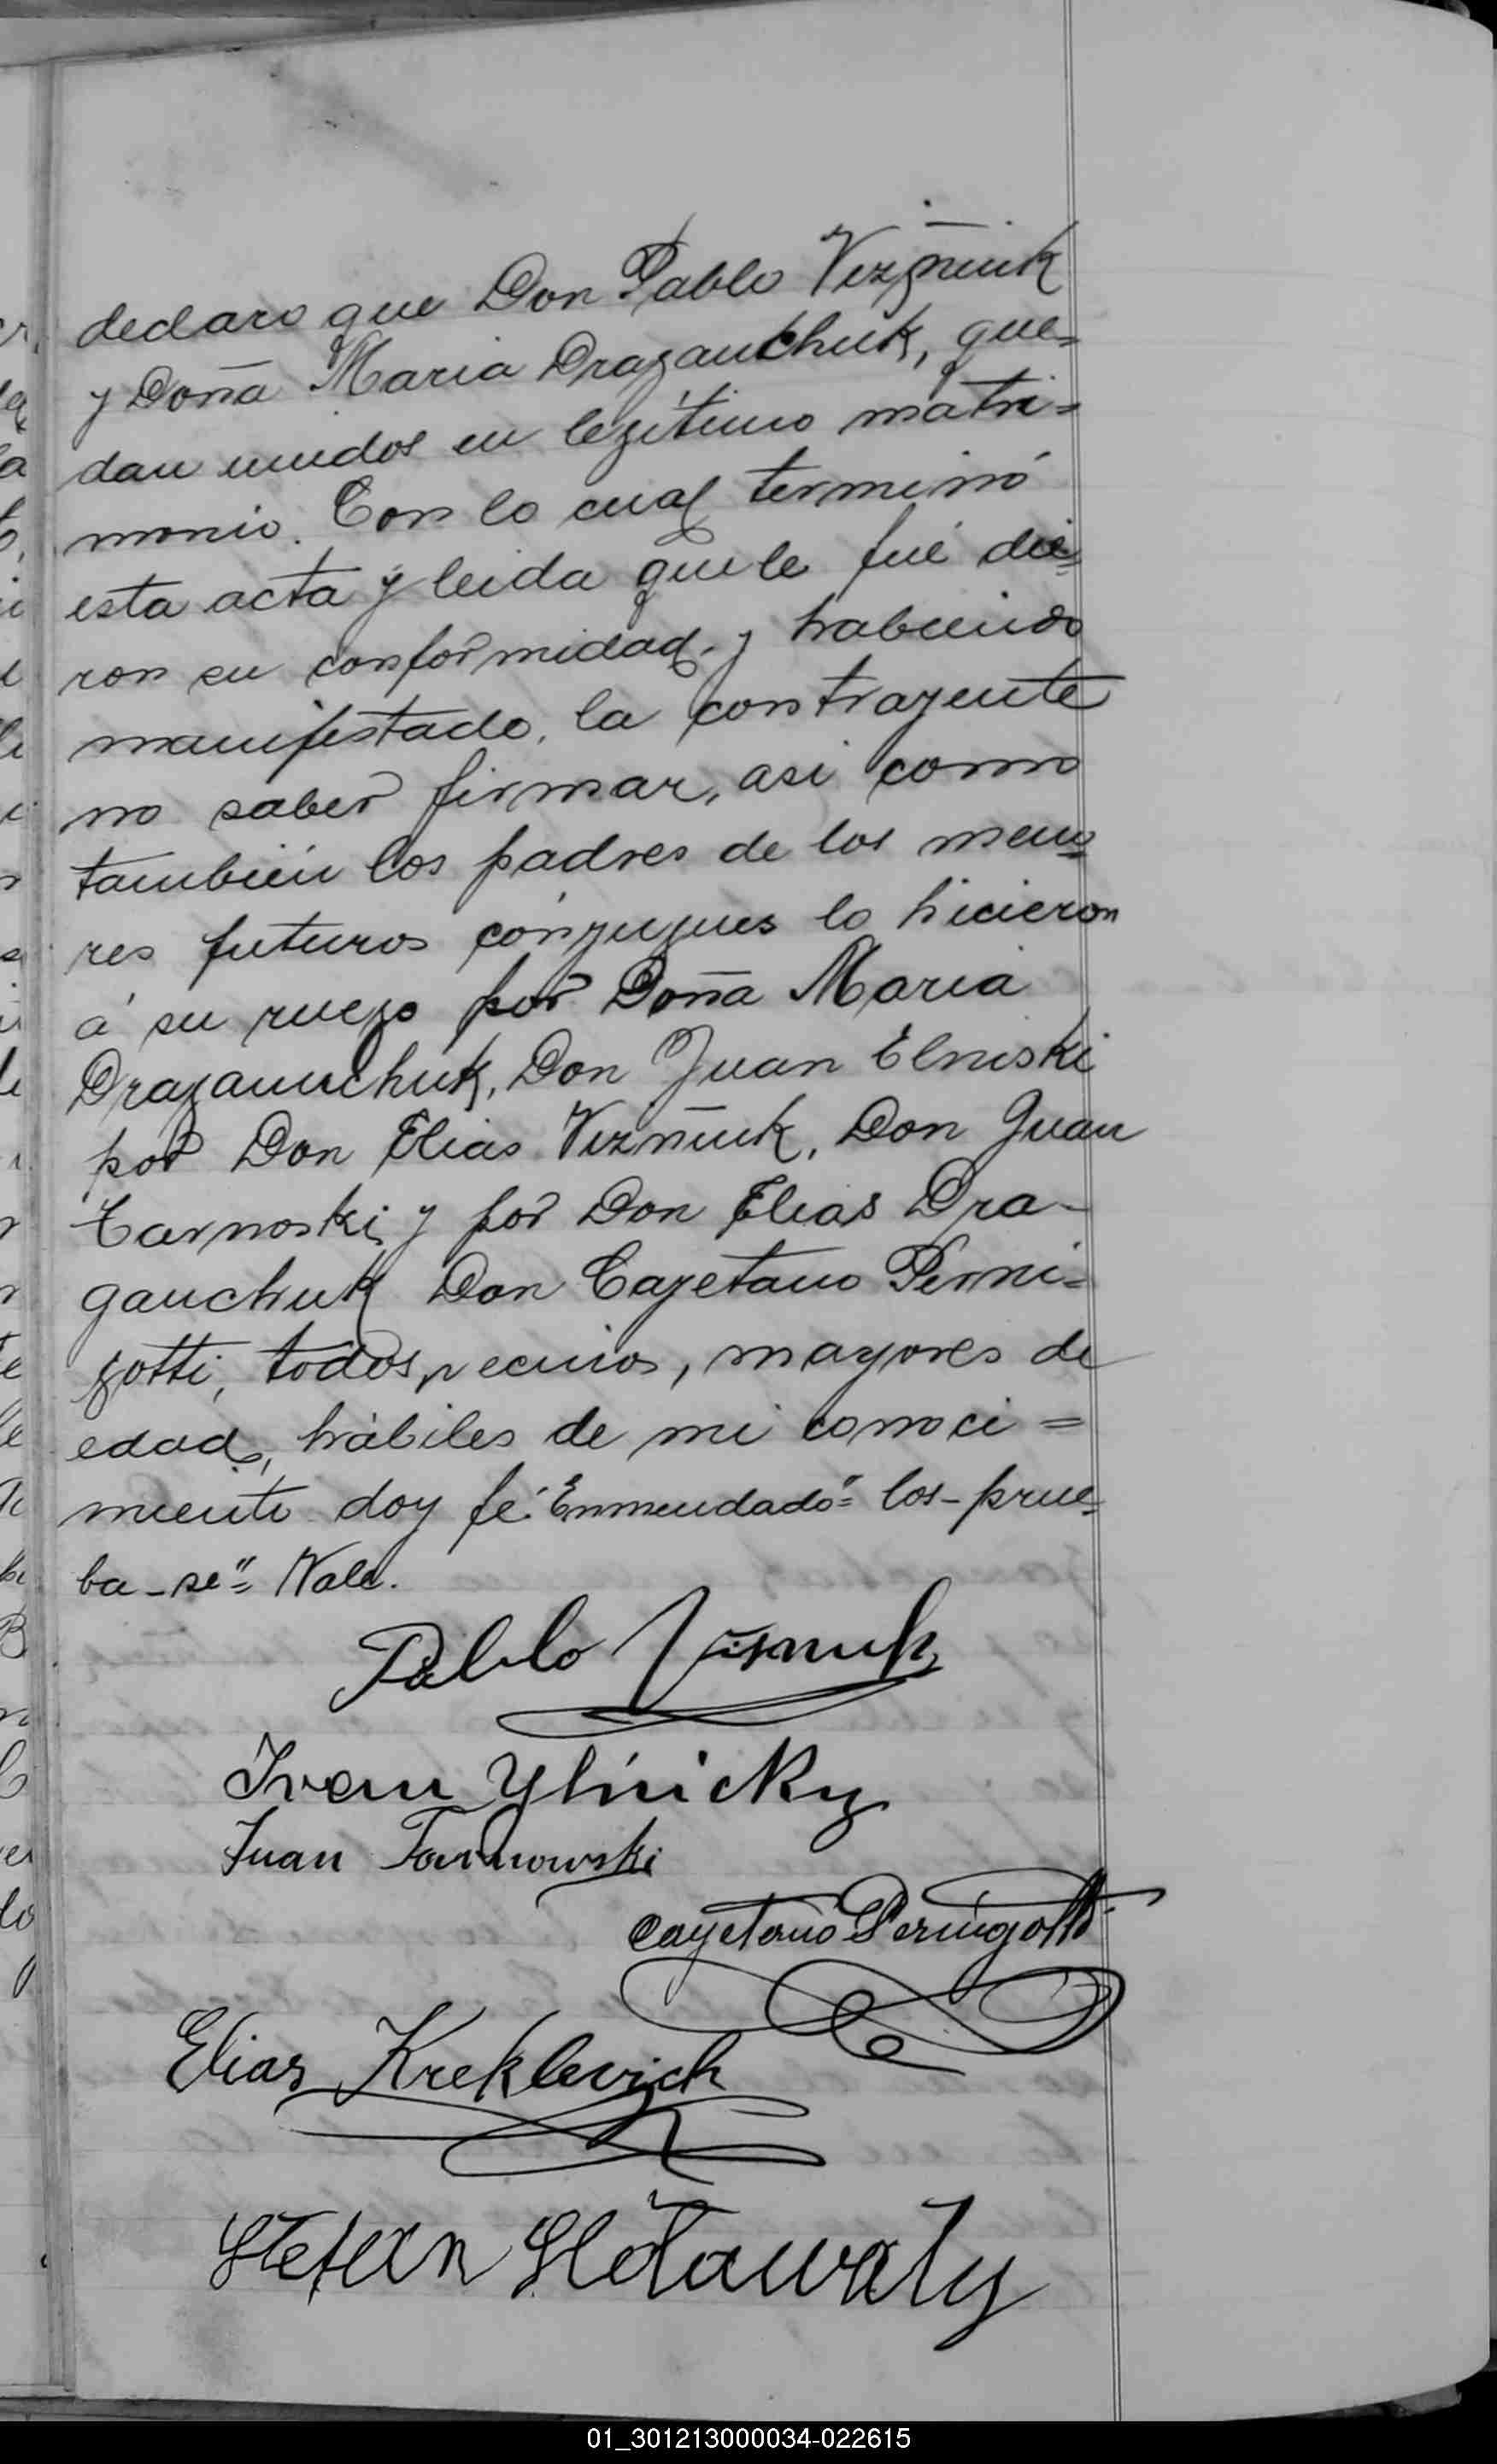 declaro que Don Pablo Vizñiuk
y Doña Maria Draganchuk, que=
dan unidos en legítimo matri=
monio. Con lo cual terminó
esta acta y leida que le fué die=
ron su conformidad. y habiendo
manifestado, la contrayente
no saber firmar, asi como
también los padres de los meno=
res futuros cónyugues lo hicieron
á su ruego por Doña Maria
Draganuchuk, Don Juan Elniski
por Don Elias Vizñiuk, Don Juan
Tarnoski y por Don Elias Dra-
ganchuk Don Cayetano Perni=
gotti, todos vecinos, mayores de
edad, hábiles de mi conoci=
miento doy fé. "Enmendado"= los-prue=
ba-se"= Vale.
Pablo Visniuk
Ivan Ylnicky
Juan Tarnowski
Cayetano Pernigotti
Elias Kreklevich
Stefan
01_301213000034-022615